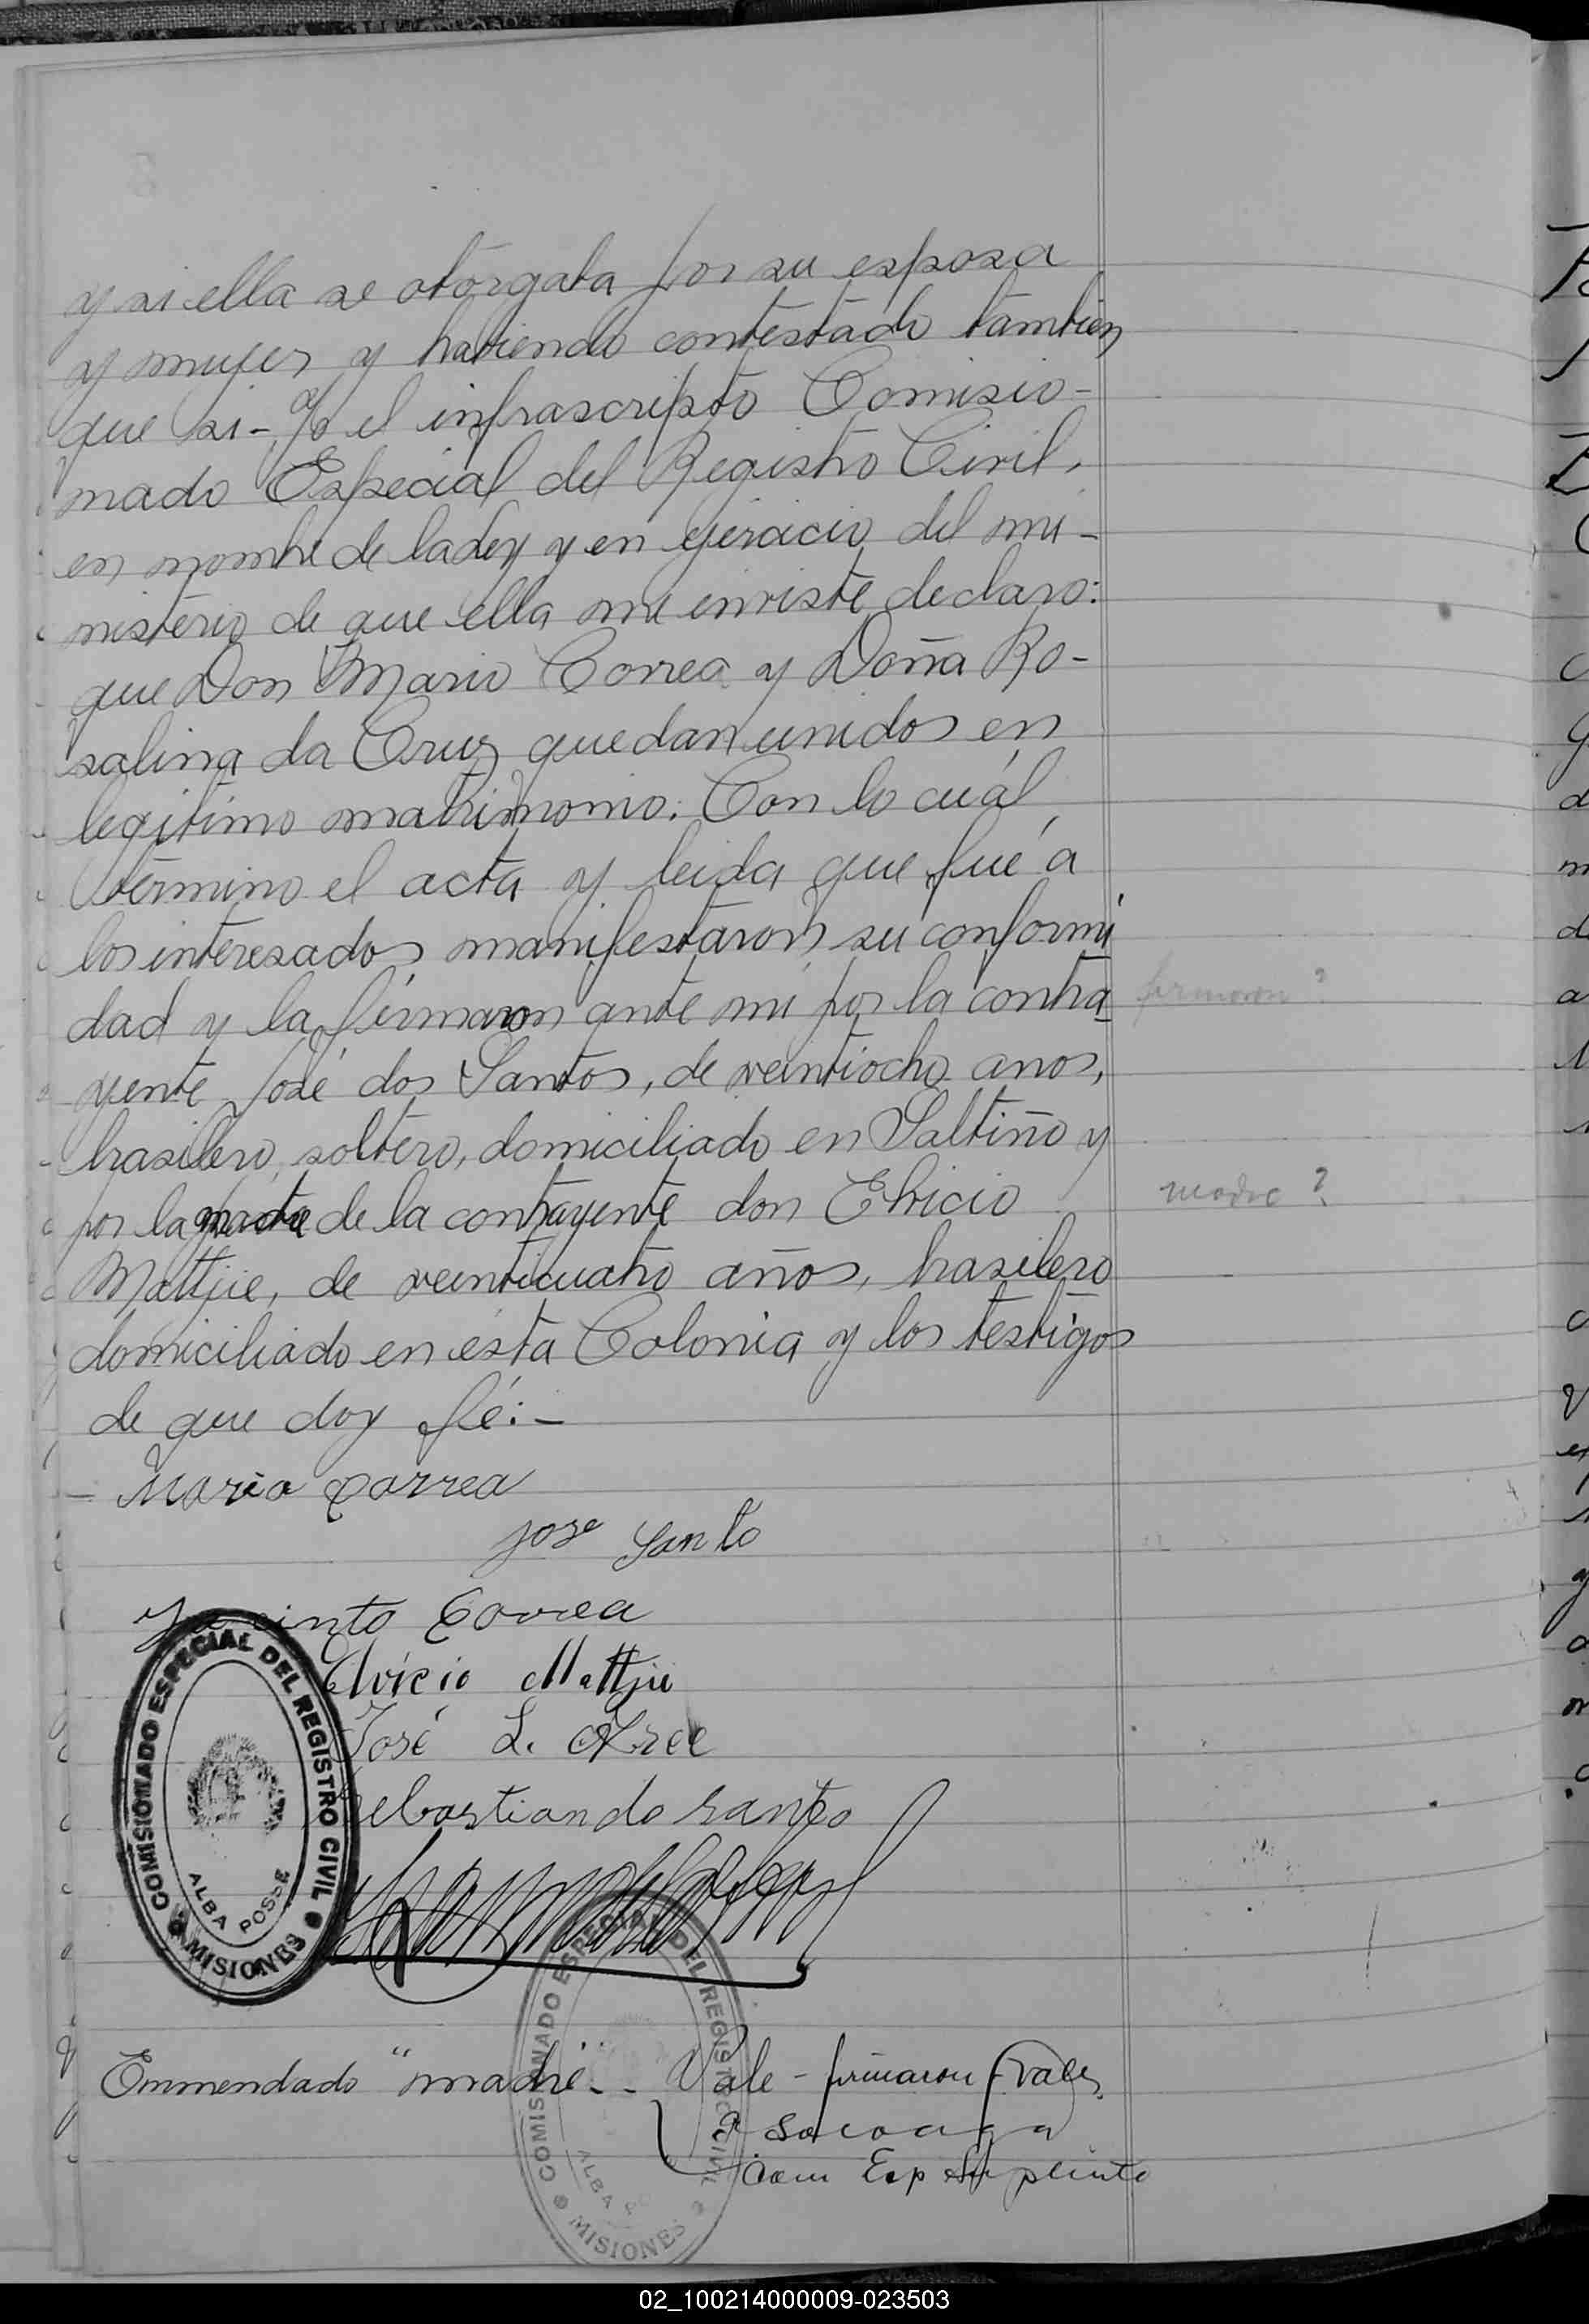 y si ella se otorgaba por su esposa
y mujer y habiendo contestado también
que si-Yo el infrascripto Comisio-
nado Especial del Registro Civil,
en nombre de la Ley y en ejercicio del mi-
nisterio de que ella me enviste declaro:
que Don Mario Correa y Doña Ro-
salina da Cruz quedan unidos en
legitimo matrimonio. Con lo cuál
termino el acta y leida que fué a
los interesados manifestaron su conformi
dad y la firmaron ante mi por la contra
firmaron ?
yente José dos Santos, de veintiocho anos,
brasilero, soltero, domiciliado en Saltiño y
por la madre de la contrayente don Elvicio
madre ?
Mattjie, de veinticuatro años, brasilero
domiciliado en ésta Colonia y los testigos
de que doy fé:-
Mario Correa
José Santo
Jacinto Correa
Elvicio Mattjie
José L. Arce
Sebastian do Santo
COMISIONADO ESPECIAL DEL REGISTRO CIVIL
ALBA POSSE
MISIONES
COMISIONADO ESPECIAL DEL REGISTRO CIVIL
ALBA PO
MISIONES
Enmendado "madre"-- Vale - firmaron - vale
Com Esp Suplente
02_100214000009-023503